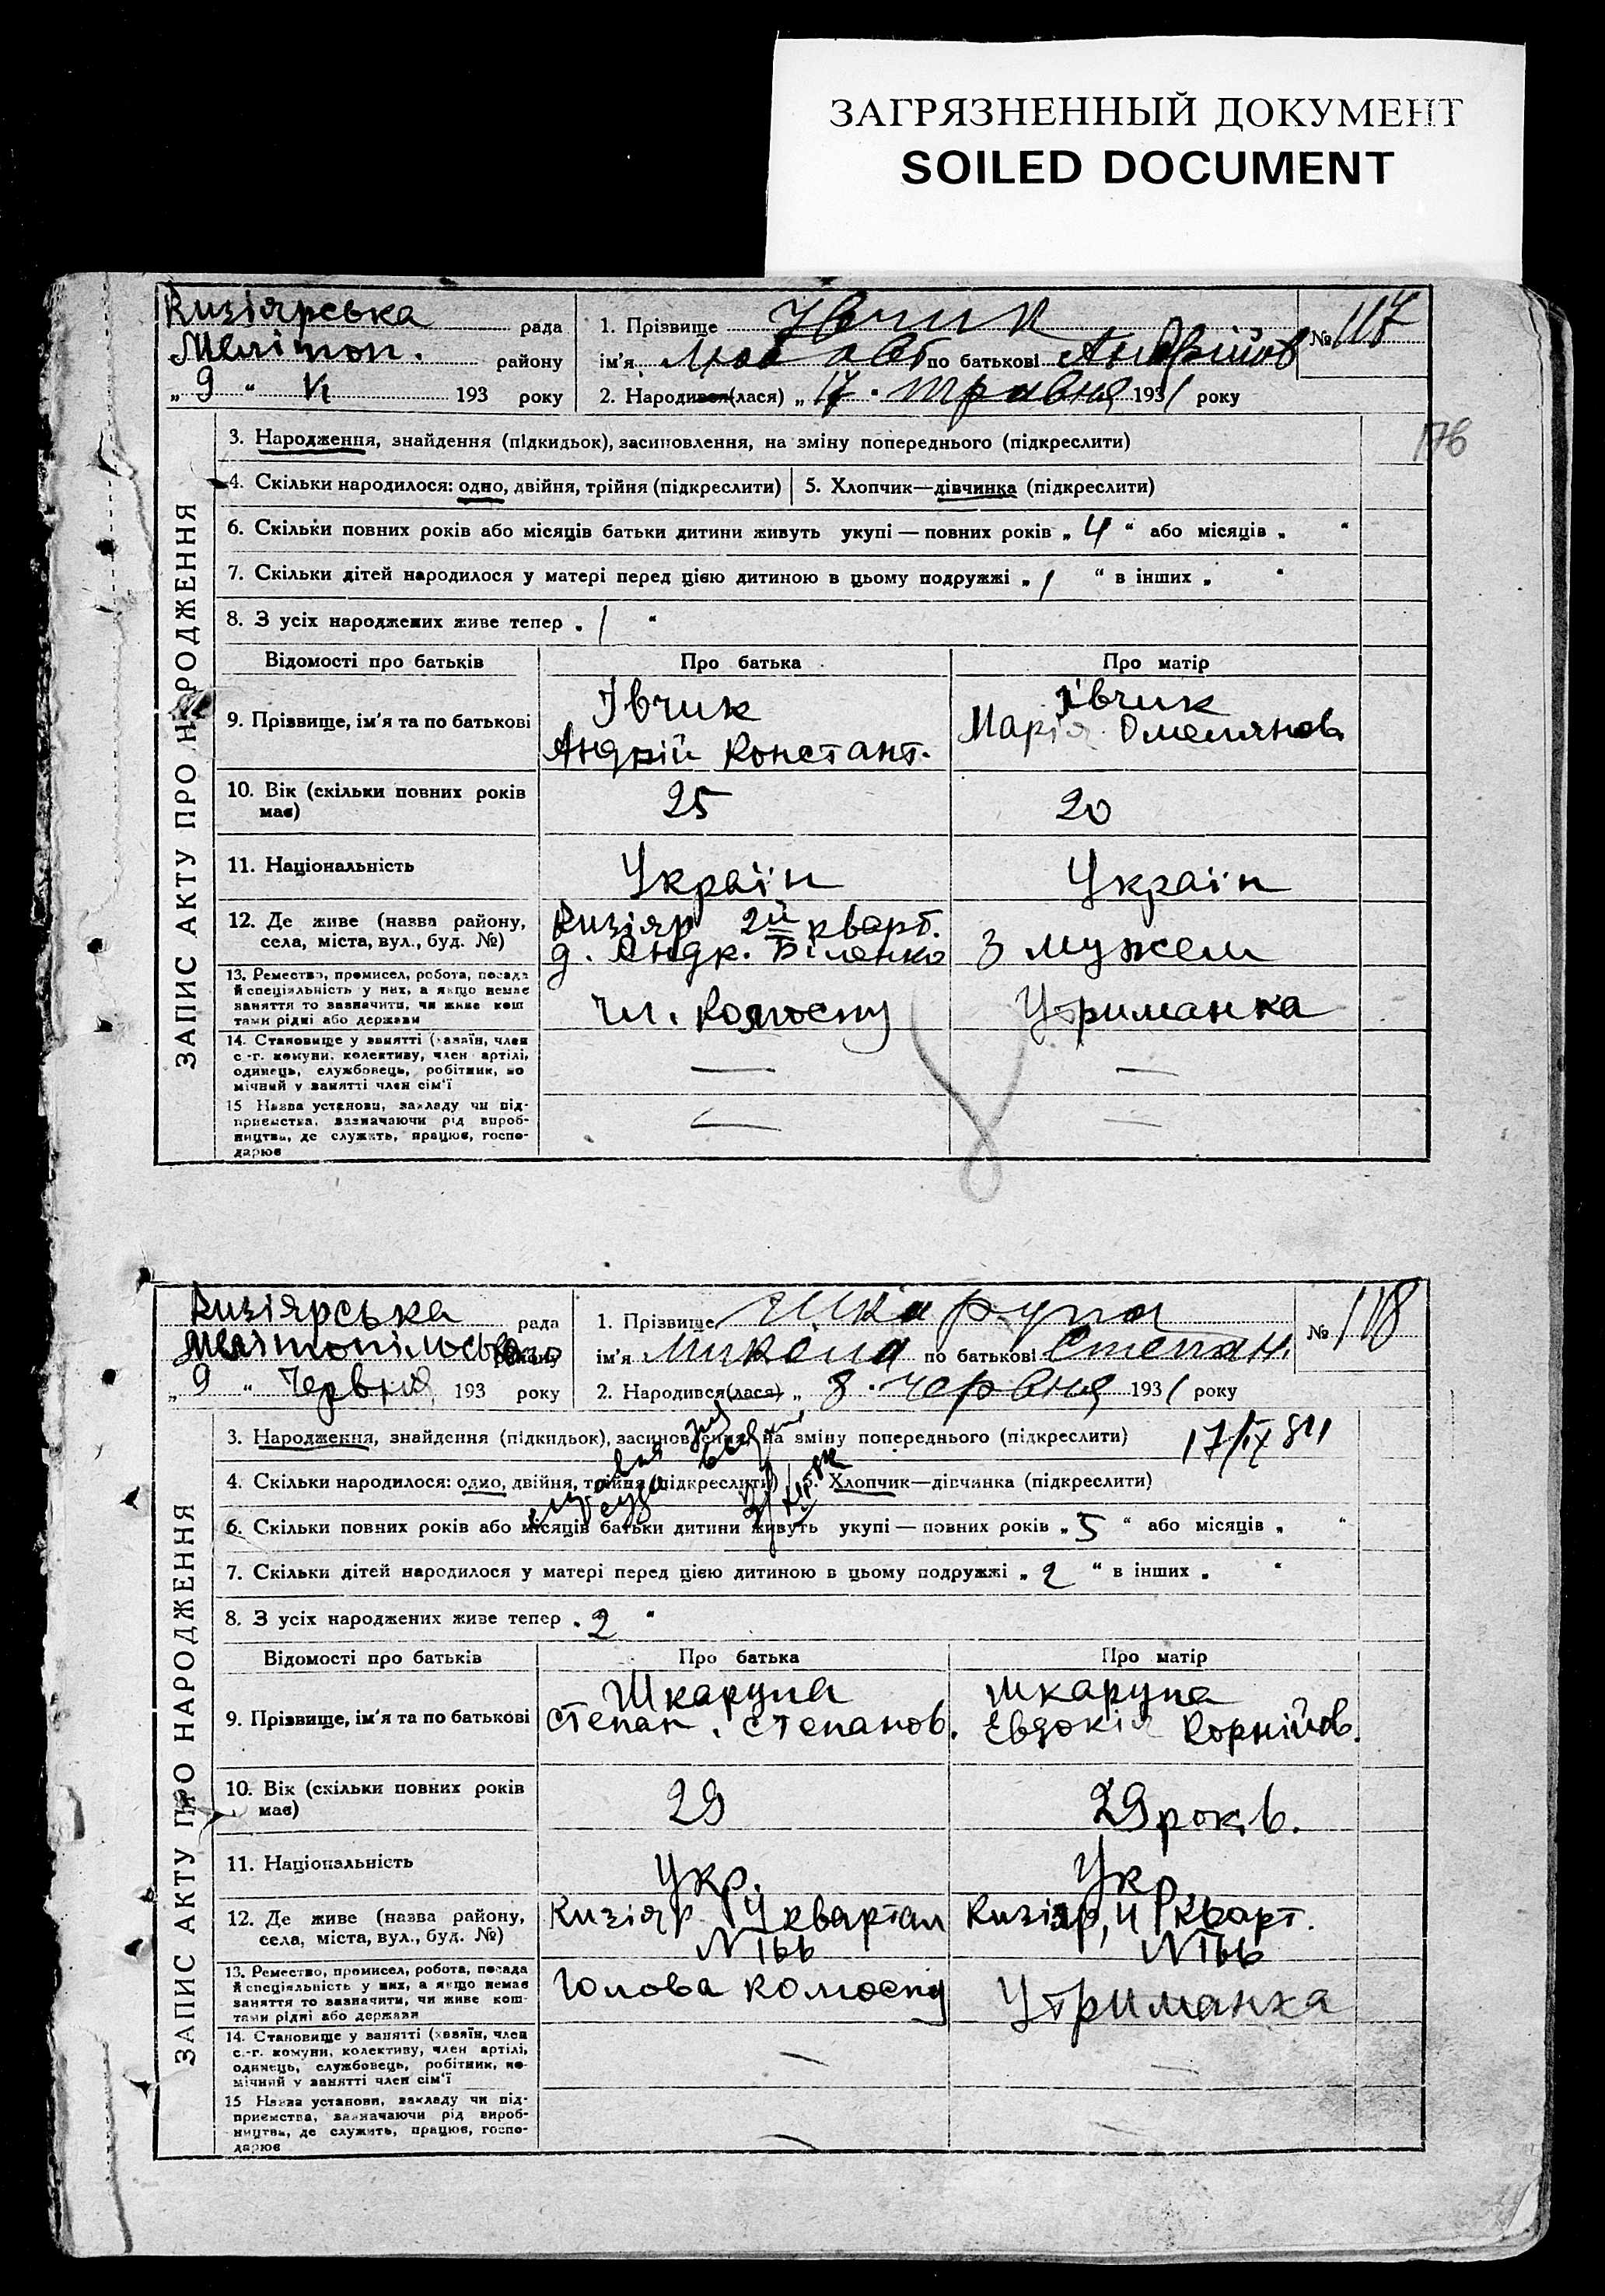 ЗАГРЯЗНЕННЫЙ ДОКУМЕНТ
SOILED DOCUMENT
Кизіярська рада
Меліітоп. району
„ 9 “ VI 193 року
1. Прізвище Івчик
ім'я Любов по батькові Андрійов
2. Народився(лася) „ 17 “ травня 1931 року
№ 117
176
ЗАПИС АКТУ ПРО НАРОДЖЕННЯ
3. Народження, знайдення (підкидьок), засиновлення, на зміну попереднього (підкреслити)
4. Скільки народилося: одно, двійня, трійня (підкреслити) 5. Хлопчик—дівчинка (підкреслити)
6. Скільки повних років або місяців батьки дитини живуть укупі — повних років „ 4 “ або місяців „ “
7. Скільки дітей народилося у матері перед цією дитиною в цьому подружжі „ 1 “ в інших „ “
8. З усіх народжених живе тепер „ 1 “
Відомості про батьків Про батька Про матір
9. Прізвище, ім'я та по батькові
Івчик
Андрій Констант.
Івчик
Марія Омелянов.
10. Вік (скільки повних років має) 25 20
11. Національність Україн Україн
12. Де живе (назва району, села, міста, вул., буд. №)
Кизіяр 2й кварт.
д. Андр. Біленко
З мужем
13. Ремество, промисел, робота, посада й спеціяльність у них, а якщо немає заняття то зазначити, чи живе коштами рідні або держави
чл. колгоспу
Утриманка
14. Становище у занятті (хазяїн, член с.-г. комуни, колективу, член артілі, одинець, службовець, робітник, помічний у занятті член сім'ї — —
15 Назва установи, закладу чи підприємства, зазначаючи рід виробництва, де служить, працює, господарює — —
Кизіярська рада
Мелітопільського району
„ 9 “ Червня 193 року
1. Прізвище Шкарупа
ім'я Микола по батькові Степан.
2. Народився(лася) „ 8 “ червня 1931 року
№ 118
ЗАПИС АКТУ ПРО НАРОДЖЕННЯ
3. Народження, знайдення (підкидьок), засиновлення, на зміну попереднього (підкреслити)
17/IX 84
4. Скільки народилося: одно, двійня, трійня (підкреслити) 5. Хлопчик—дівчинка (підкреслити)
6. Скільки повних років або місяців батьки дитини живуть укупі — повних років „ 5 “ або місяців „ “
7. Скільки дітей народилося у матері перед цією дитиною в цьому подружжі „ 2 “ в інших „ “
8. З усіх народжених живе тепер „ 2 “
Відомості про батьків Про батька Про матір
9. Прізвище, ім'я та по батькові
Шкарупа
Степан. Степанов.
Шкарупа
Евдокія Корнійов.
10. Вік (скільки повних років має) 29 29 років.
11. Національність Укр. Укр.
12. Де живе (назва району, села, міста, вул., буд. №)
Кизіяр квартал
№ 166
Кизіяр, кварт.
№ 166
13. Ремество, промисел, робота, посада й спеціяльність у них, а якщо немає заняття то зазначити, чи живе коштами рідні або держави
Голова колгоспу
Утриманка
14. Становище у занятті (хазяїн, член с.-г. комуни, колективу, член артілі, одинець, службовець, робітник, помічний у занятті член сім'ї — —
15 Назва установи, закладу чи підприємства, зазначаючи рід виробництва, де служить, працює, господарює — —